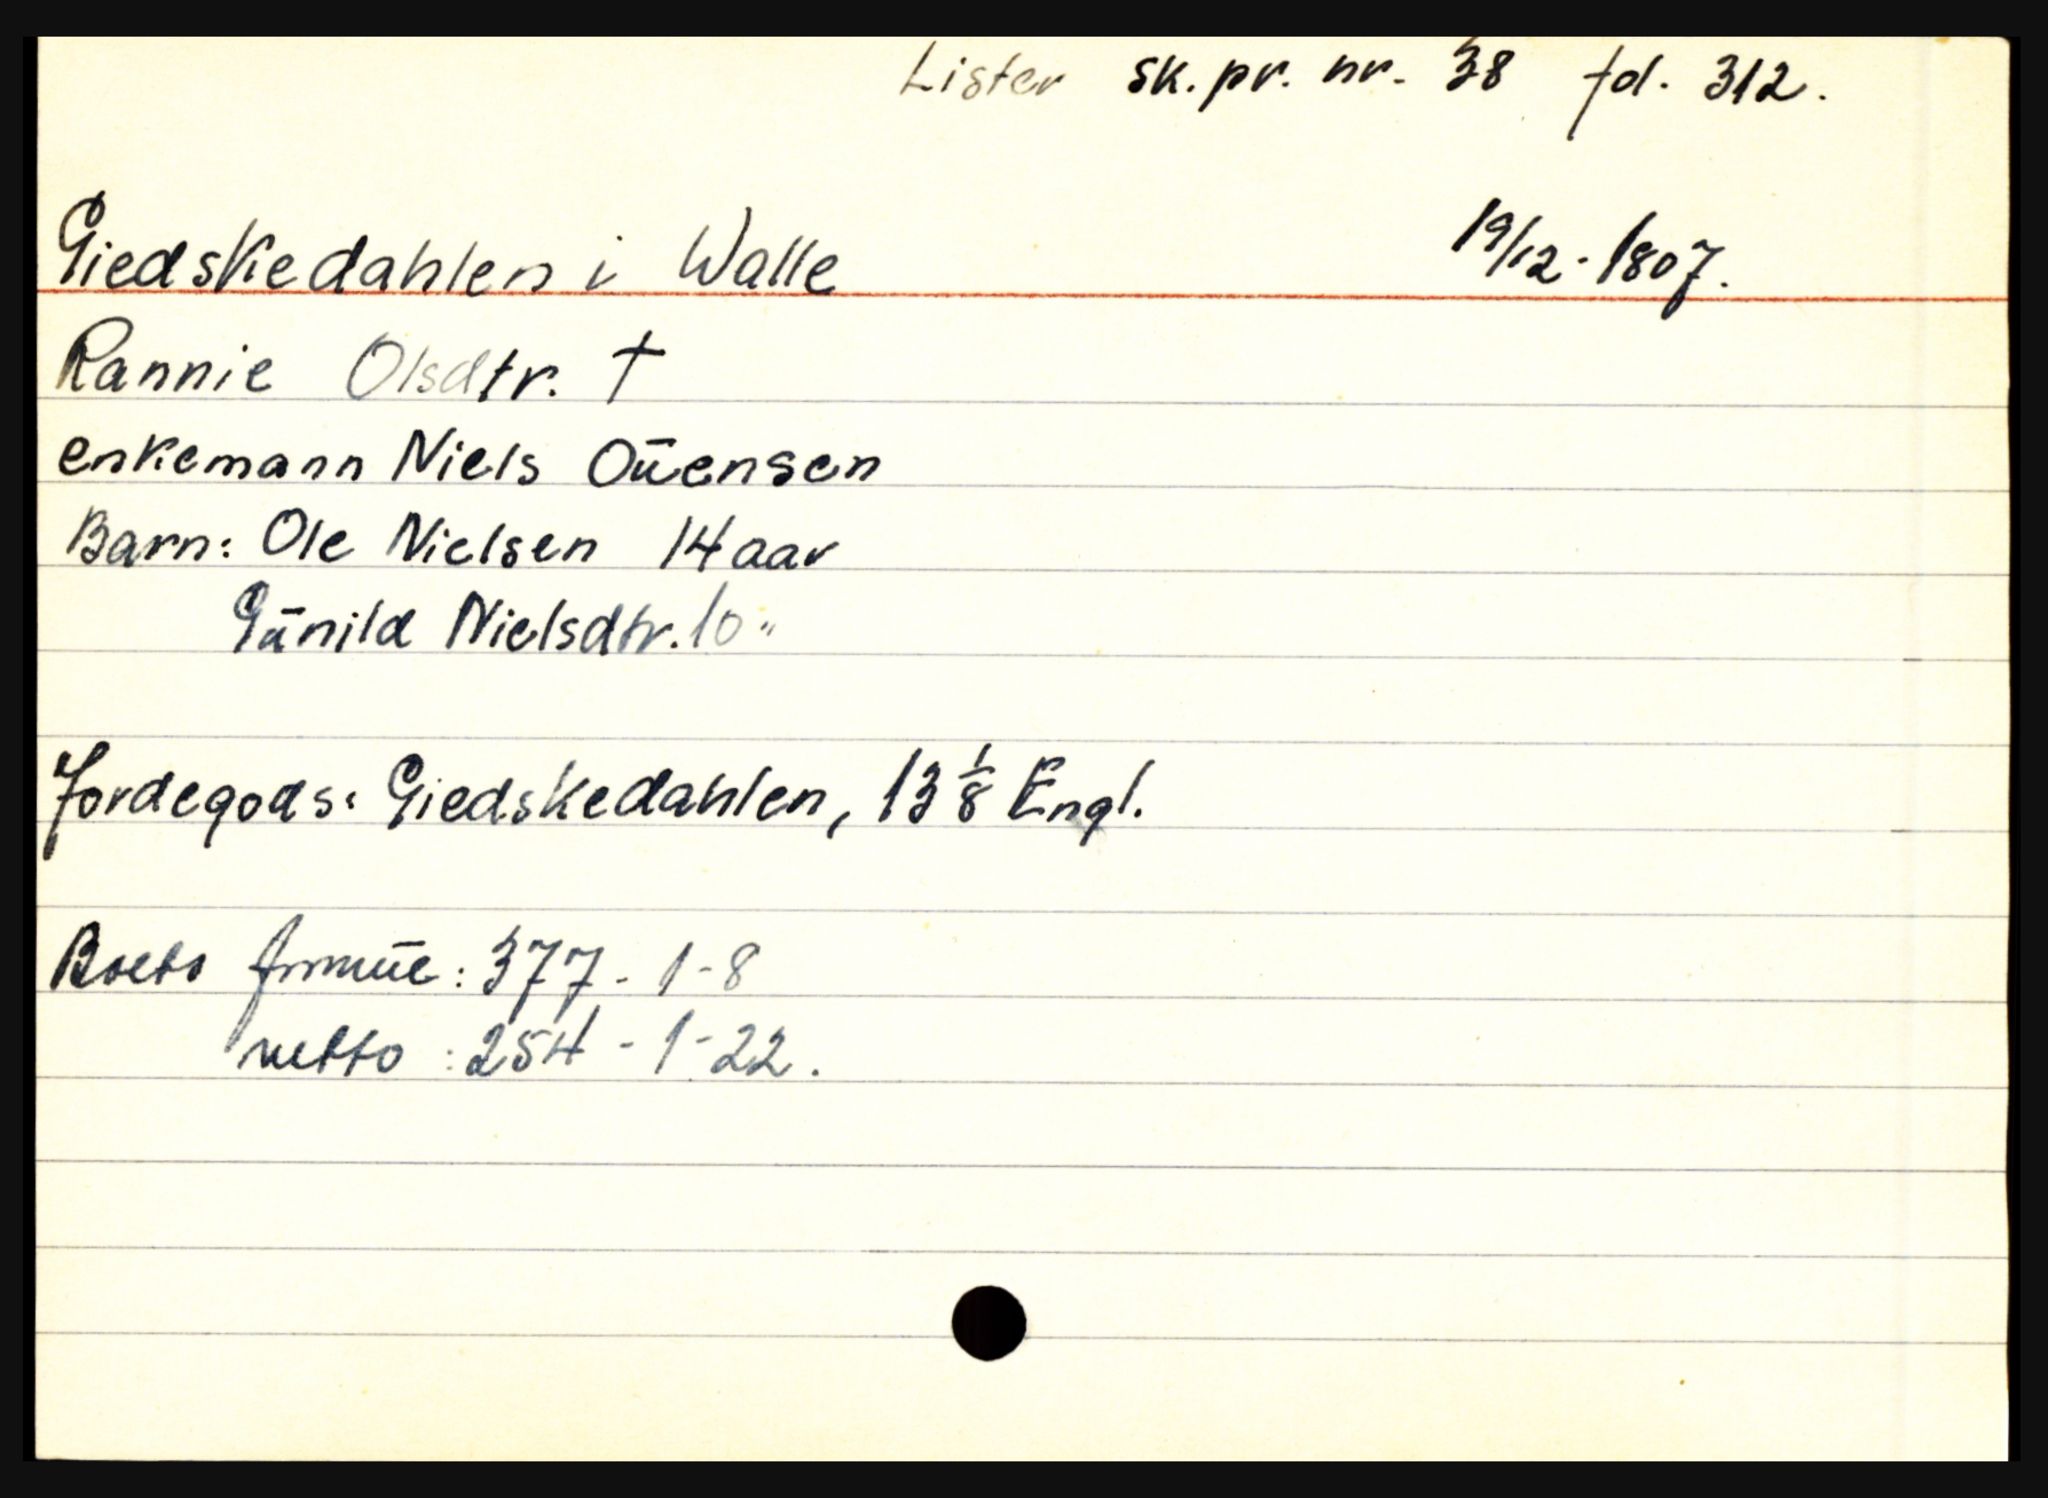 Lister sk. pr. nr. 38 fol. 312.
Giedskedahlen i Walle 19/12-1807.
Rannie Olsdtr. †
enkemann Niels Oūensen
Barn: Ole Nielsen 14 aar
Gūnild Nielsdtr. 10 "
Jordegods: Giedskedahlen, 13 1/8 Engl.
Boets formūe: 377 - 1 - 8
netto: 254 - 1 - 22.